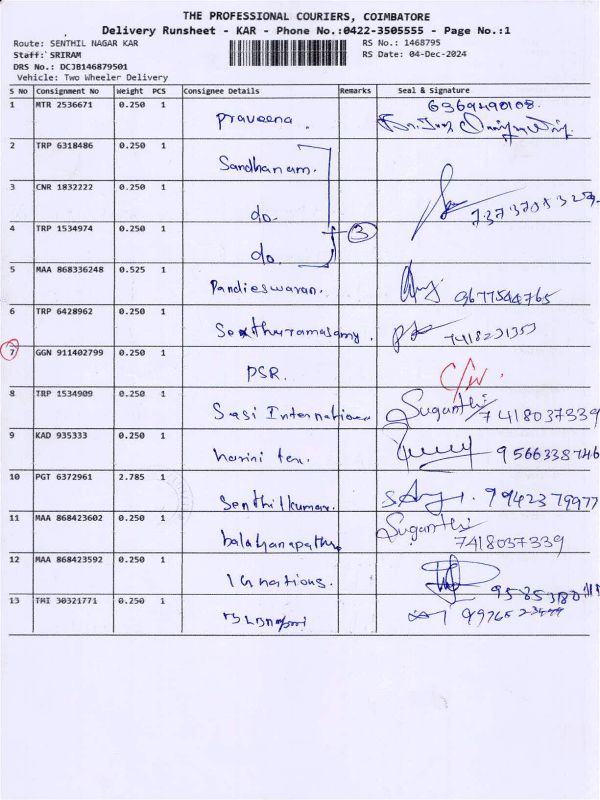 THE PROFESSIONAL COURIERS, COIMBATORE
Delivery Runsheet - KAR - Phone No.:0422-3505555 - Page No.:1
Route: SENTHIL NAGAR KAR RS No.: 1468795
Staff: SRIRAM RS Date: 04-Dec-2024
DRS No.: DCJB146879501
Vehicle: Two Wheeler Delivery
S No Consignment No Weight PCS Consignee Details Remarks Seal & Signature
1 MTR 2536671 0.250 1 praveena. 6369490108.
2 TRP 6318486 0.250 1 Sandhanam.
3 CNR 1832222 0.250 1 do.
4 TRP 1534974 0.250 1 do. 3
5 MAA 868336248 0.525 1 Pandieswaran. 9677544765
6 TRP 6428962 0.250 1
7 GGN 911402799 0.250 1 PSR.
8 TRP 1534909 0.250 1 Sasi International Suganthi 7418037339
9 KAD 935333 0.250 1 harini tex. 9566338746
10 PGT 6372961 2.785 1 Senthilkumar. 9942379977
11 MAA 868423602 0.250 1 Suganthi 7418037339
12 MAA 868423592 0.250 1
13 TMI 30321771 0.250 1